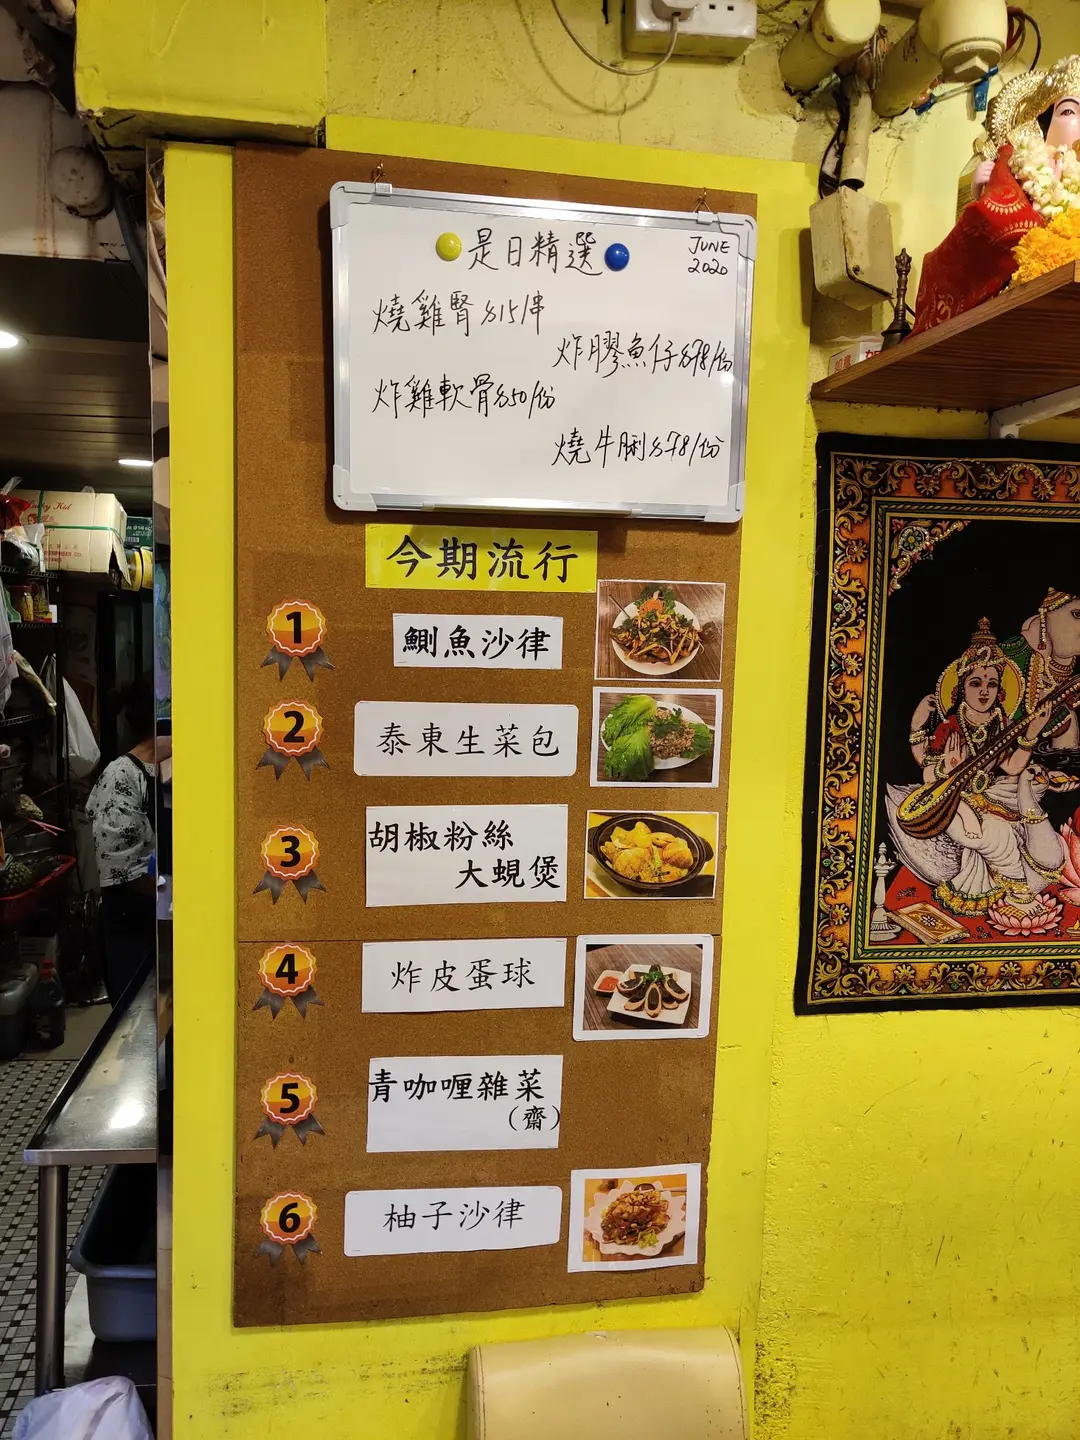 是日精選
JUNE
2020
燒雞腎$15/串
炸膠魚仔$78/份
炸雞軟骨$50/份
燒牛脷$78/份
今期流行
1
鰂魚沙律
2
泰東生菜包
3
胡椒粉絲
大蜆煲
4
炸皮蛋球
5
青咖喱雜菜
(齋)
6
柚子沙律